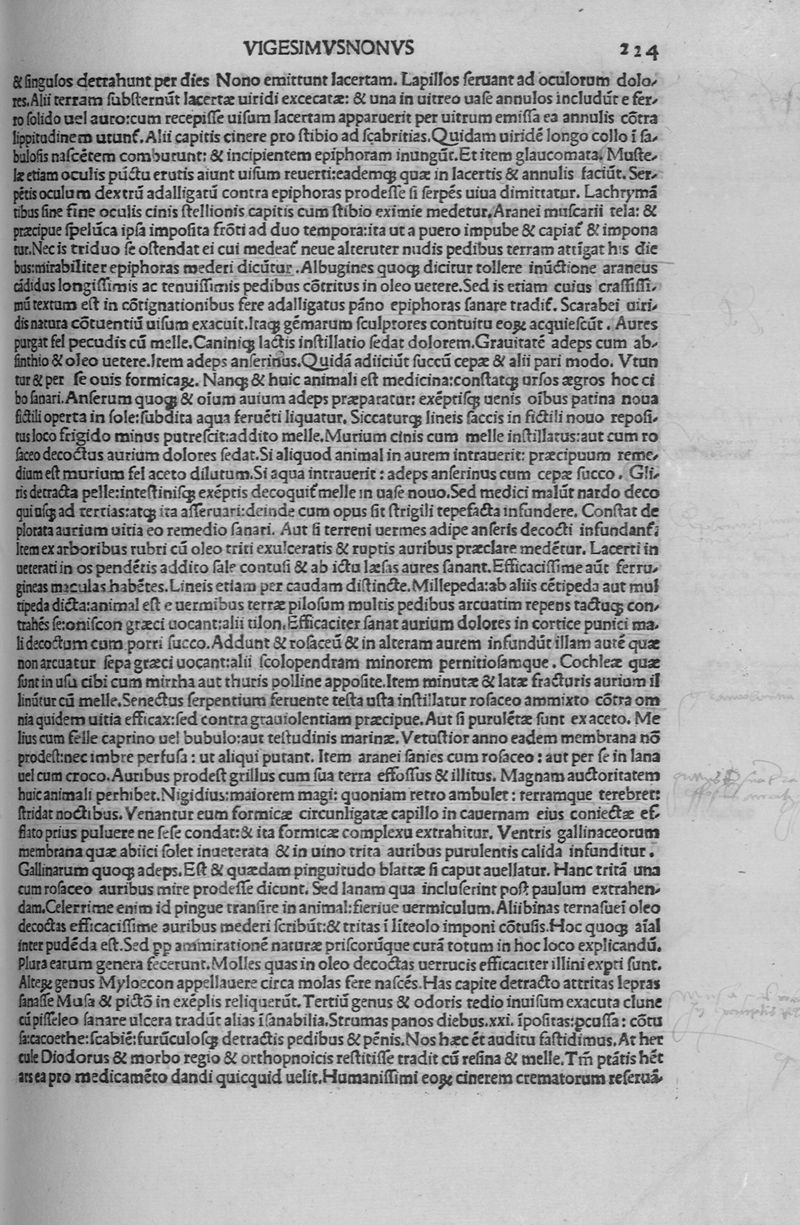 VIGESIMVSNONVS 224
& singulos detrahunt per dies Nono emittunt lacertam. Lapillos seruant ad oculorum dolo/
res. Alii terram substernūt lacertæ uiridi excecatæ: & una in uitreo uase annulos includūt e fer/
ro solido uel auro: cum recepisse uisum lacertam apparuerit per uitrum emissa ea annulis cōtra
lippitudinem utunt̄. Alii capitis cinere pro stibio ad scabritias. Quidam uiridē longo collo ī sa/
bulosis nascētem comburunt: & incipientem epiphoram inungūt. Et item glaucomata. Muste/
læ etiam oculis pūctu erutis aiunt uisum reuerti: eademq; quæ in lacertis & annulis faciūt. Ser/
pētis oculum dextrū adalligatū contra epiphoras prodesse si serpēs uiua dimittatur. Lachrymā
tibus sine fine oculis cinis stellionis capitis cum stibio eximie medetur. Aranei muscarii tela: &
præcipue speluca ipsa imposita frōti ad duo tempora: ita ut a puero impube & capiat̄ & impona
tur. Nec is triduo se ostendat ei cui medeat̄ neue alteruter nudis pedibus terram attīgat his die
bus: mirabiliter epiphoras mederi dicūtur. Albugines quoq; dicitur tollere inūctione araneus
cādidus longissimis ac tenuissimis pedibus cōtritus in oleo uetere. Sed is etiam cuius crassissi/
mū textum est in cōtignationibus fere adalligatus pāno epiphoras sanare tradit̄. Scarabei uiri/
dis natura cōtuentiū uisum exacuit. Itaq; gēmarum sculptores contuitu eoꝝ acquiescūt. Aures
purgat fel pecudis cū melle. Caninīq; lactis instillatio sedat dolorem. Grauitatē adeps cum ab/
sinthio & oleo uetere. Item adeps anserinus. Quidā adiiciūt succū cepæ & alii pari modo. Vtun
tur & per se ouis formicaꝝ. Nanq; & huic animali est medicina: constatq; ursos ægros hoc ci
bo sanari. Anserum quoq; & oīum auium adeps præparatur: exēptisq; uenis oībus patina noua
fictili operta in sole: subdita aqua feruēti liquatur. Siccaturq; lineis saccis in fictili nouo reposi/
tus loco frigido minus putrescit: addito melle. Murium cinis cum melle instillatus: aut cum ro
saceo decoctus aurium dolores sedat. Si aliquod animal in aurem intrauerit: præcipuum reme/
dium est murium fel aceto dilutum. Si aqua intrauerit: adeps anserinus cum cepæ succo. Gli/
ris detracta pelle: intestinisq; exēptis decoquit̄ melle in uase nouo. Sed medici malūt nardo deco
qui usq; ad tertias: atq; ita asseruari: deinde cum opus sit strigili tepefacta infundere. Constat de
plorata aurium uitia eo remedio sanari. Aut si terreni uermes adipe anseris decocti infundant̄:
Item ex arboribus rubri cū oleo triti exulceratis & ruptis auribus præclare medētur. Lacerti in
ueterati in os pendētis addito sale contusi & ab ictu læsas aures sanant. Efficacissime aūt ferru/
gineas maculas habētes. Lineis etiam per caudam distincte. Millepeda: ab aliis cētipeda aut mul
tipeda dicta: animal est e uermibus terræ pilosum multis pedibus arcuatim repens tactuq; con/
trahēs se: oniscon græci uocant: alii tilon. Efficaciter sanat aurium dolores in cortice punici ma/
li decoctum cum porri succo. Addunt & rosaceū & in alteram aurem infundūt illam autē quæ
non arcuatur sepa græci uocant: alii scolopendram minorem pernitiosamque. Cochleæ quæ
sunt in usu cibi cum mirrha aut thuris polline apposite. Item minutæ & latæ fracturis aurium il
linūtur cū melle. Senectus serpentium feruente testa usta instillatur rosaceo ammixto cōtra om
nia quidem uitia efficax: sed contra grauiolentiam præcipue. Aut si purulētæ sunt ex aceto. Me
lius cum felle caprino uel bubulo: aut testudinis marinæ. Vetustior anno eadem membrana nō
prodest: nec imbre perfusa: ut aliqui putant. Item aranei sanies cum rosaceo: aut per se in lana
uel cum croco. Auribus prodest grillus cum sua terra effossus & illitus. Magnam auctoritatem
huic animali perhibet. Nigidius: maiorem magi: quoniam retro ambulet: terramque terebret:
stridat noctibus. Venantur eum formicæ circunligatæ capillo in cauernam eius coniectæ ef/
flato prius puluere ne sese condat: & ita formicæ complexu extrahitur. Ventris gallinaceorum
membrana quæ abiici solet inueterata & in uino trita auribus purulentis calida infunditur.
Gallinarum quoq; adeps. Est & quædam pinguitudo blattæ si caput auellatur. Hanc tritā una
cum rosaceo auribus mire prodesse dicunt. Sed lanam qua incluserint post paulum extrahen/
dam. Celerrime enim id pingue transire in animal: fierique uermiculum. Alii binas ternasuei oleo
decoctas efficacissime auribus mederi scribūt: & tritas ī līteolo imponi cōtusis. Hoc quoq; aīal
inter pudēda est. Sed ꝓp ammirationē naturæ priscorūque curā totum in hoc loco explicandū.
Plura earum genera fecerunt. Molles quas in oleo decoctas uerrucis efficaciter illini expti sunt.
Alteꝝ genus Myloecon appellauere circa molas fere nascēs. Has capite detracto attritas lepras
sanasse Musa & pictō in exēplis reliquerūt. Tertiū genus & odoris tedio inuisum exacuta clune
cū pisseleo sanare ulcera tradūt alias īsanabilia. Strumas panos diebus. xxi. īpositas: pcussa: cōtu
sa: cacoethe: scabiē: furūculosq; detractis pedibus & pēnis. Nos hæc ēt auditu fastidimus. At her
cule Diodorus & morbo regio & orthopnoicis restitisse tradit cū resina & melle. Tm̄ ptātis hēt
ars ea pro medicamēto dandi quicquid uelit. Humanissimi eoꝝ cinerem crematorum referuā/